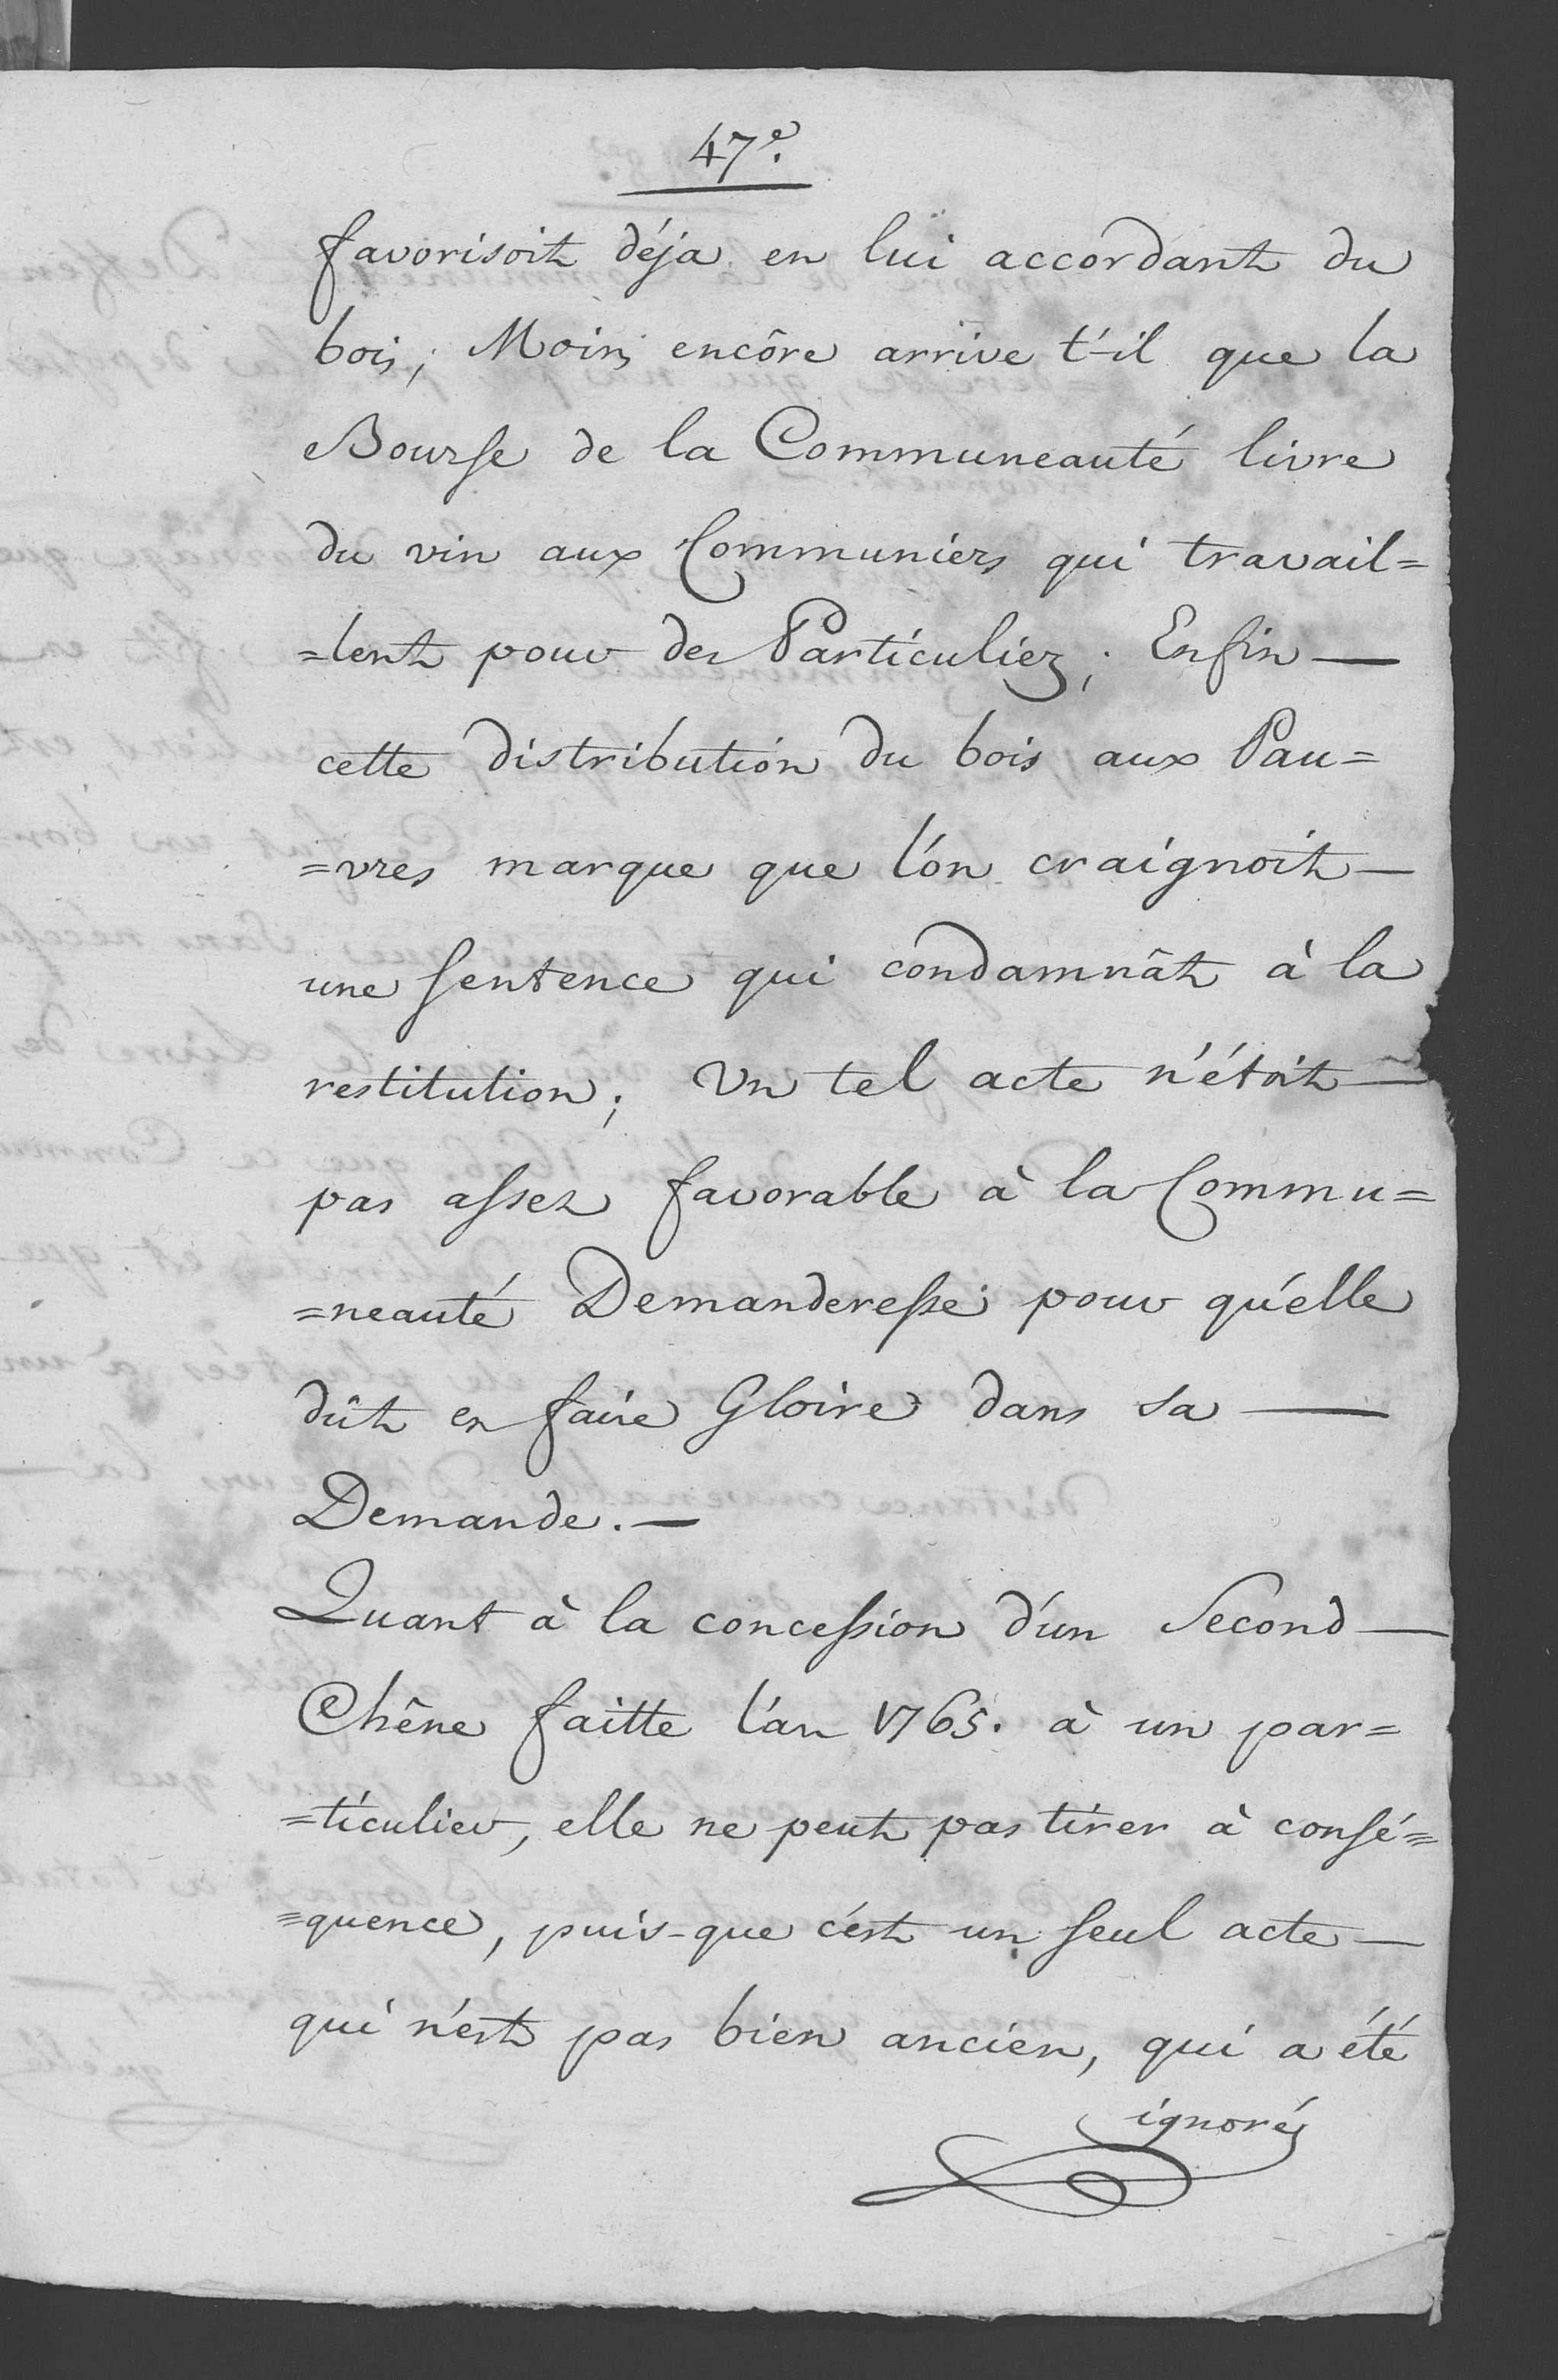 47e.
favorisoit déja en lui accordant du
bois; Moins encôre arrive t'-il que la
Bourse de la Communeauté livre
du vin aux Communiers qui travail=
=lent pour des Particuliers; Enfin —
cette distribution du bois aux Pau=
=vres marque que l'on craignoit —
une sentence qui condamnât à la
restitution; Un tel acte n'étoit —
pas assez favorable à la Commu=
=neauté Demanderesse pour qu'elle
dût en faire Gloire dans sa —
Demande. —
Quant à la concession d'un Second —
Chêne faitte l'an 1765. à un par=
=ticulier, elle ne peut pas tirer à consé=
=quence, puis-que c'est un seul acte —
qui n'est pas bien ancien, qui a été
ignoré